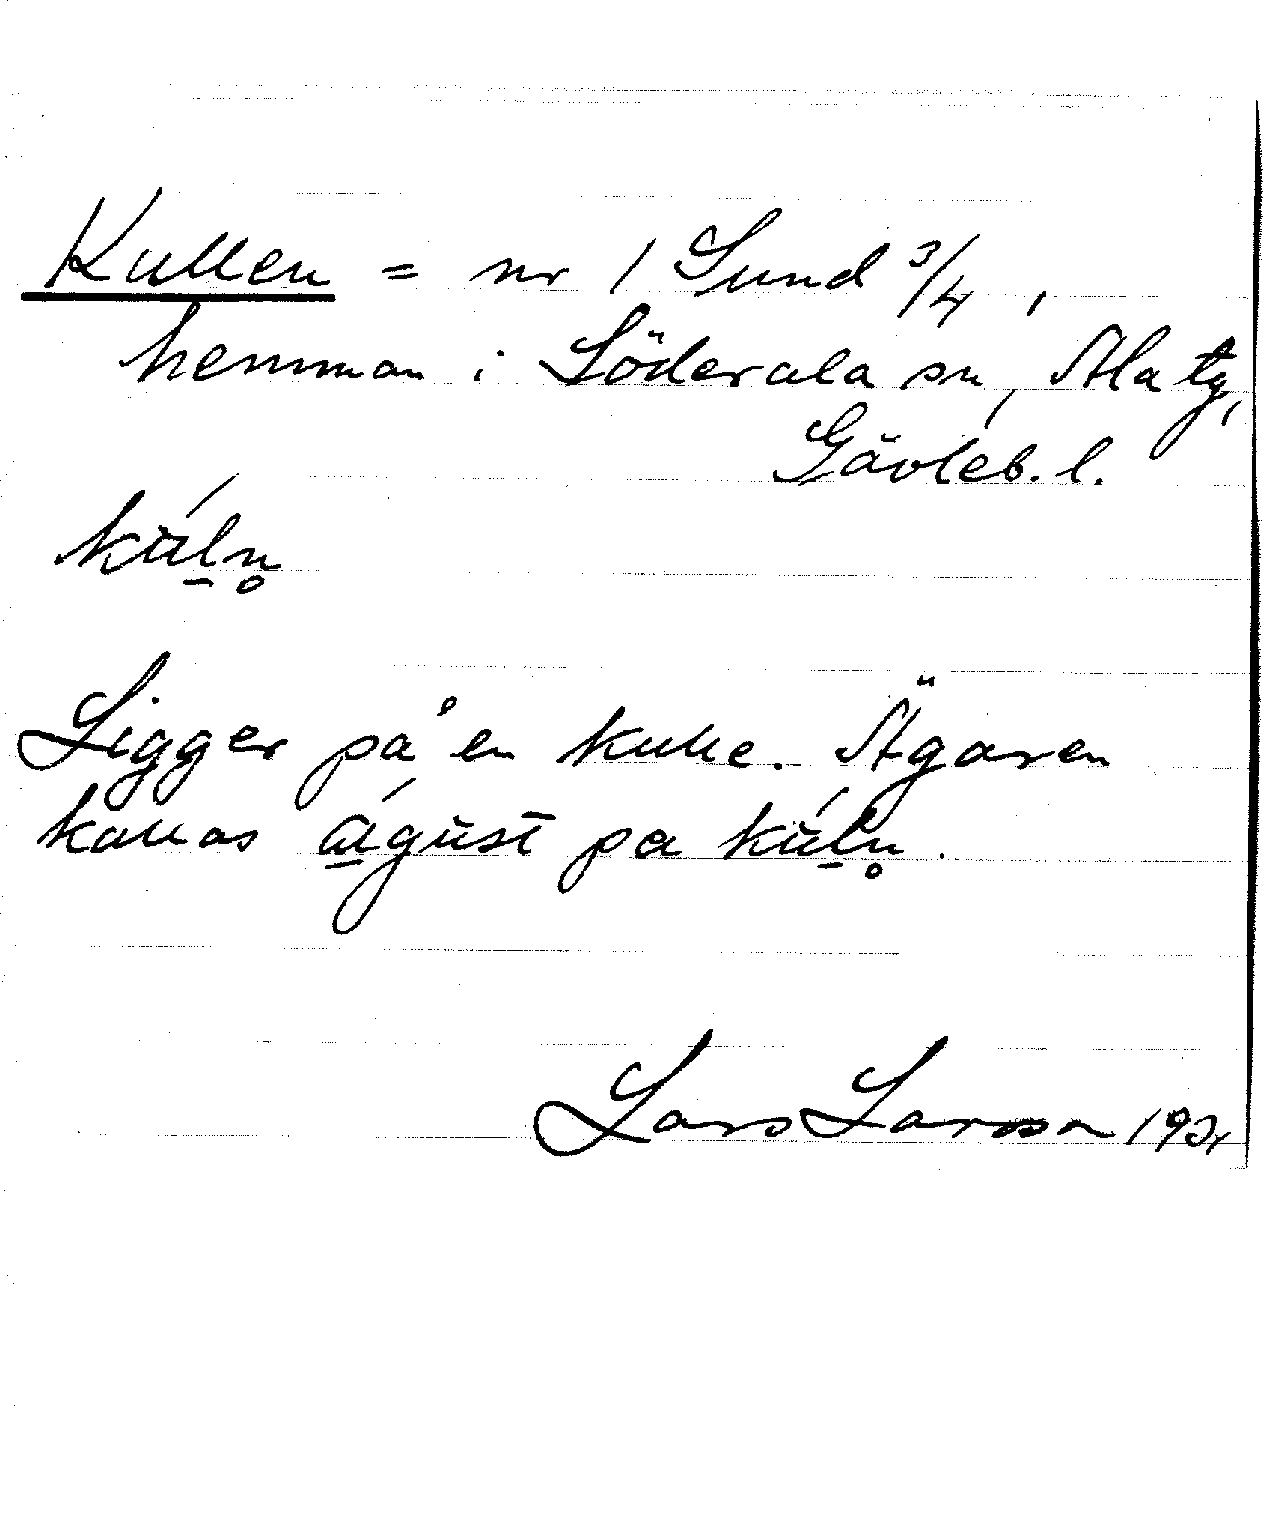 Kullen = nr 1 Sund 3/4,
hemman i Söderala sn, Ala tg,
Gävleb. l.
kúln̥
Ligger på en kulle. Ägaren
kallas águst pa kúln̥.
Lars Larsson